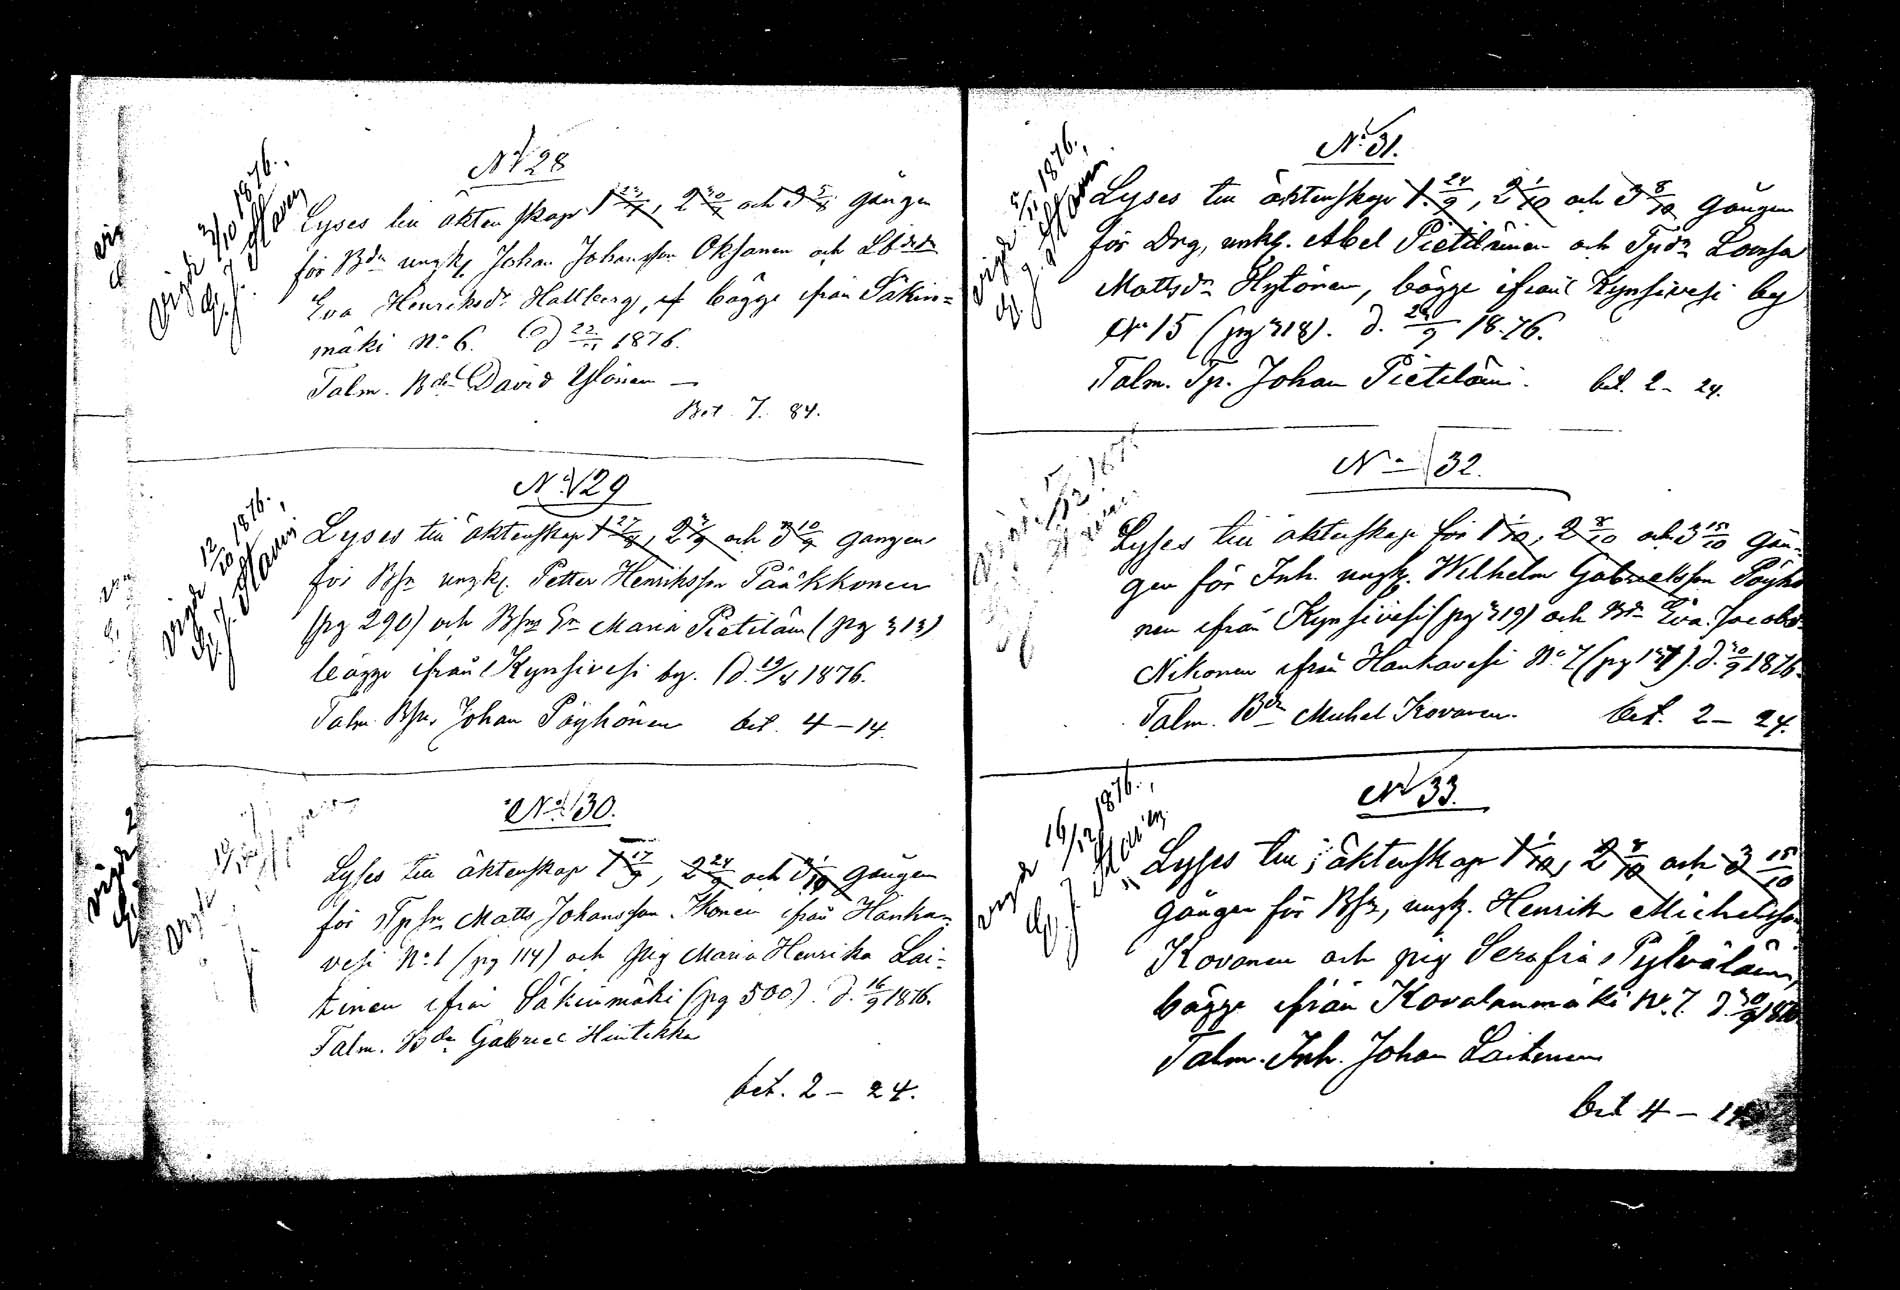 No 28
Vigde 3/10 1876.,
G. J. Stavén
Lyses till äktenskap 1 23/7, 2 30/7 och 3 5/8 gången
för Bdn ungk. Johan Johansson Oksanen och Lbdr
Eva Henriksdr Hallberg, bägge ifrån Säkin=
mäki No 6. D 22/ 1876.
Talm. Bdn David Ylönen —
Bet. 7. 84.
No 29
Vigde 12/10 1876.,
G. J. Stavén
Lyses till äktenskap 1 27/8, 2 3/9 och 3 10/9 gången
för Bsn ungk. Petter Henriksson Pääkkonen
(pg 290) och Maria Pietiläin (pg 313)
bägge ifrån Kynsivesi by. D. 19/8 1876.
Talm. Bsn. Johan Pöyhönen bet. 4 – 14.
No 30.
Vigde
Lyses till äktenskap 1 17/9, 2 24/9 och 3 1/10 gången
för Tpsn Matts Johansson Ikonen ifrån Hanka=
vesi No 1 (pg 114) och pig Maria Henrika Lai=
tinen ifrån Säkinmäki (pg 500). d. 16/9 1876.
Talm. Bdn Gabriel Hintikka
bet. 2 – 24.
No 31.
Vigde 5/11 1876.,
G. J. Stavén.
Lyses till äktenskap 1. 24/9, 2 1/10 och 3 8/10 gången
för Drg, unkg. Abel Pietiläinen och Tpdr Lovisa
Mattsdr Hytönen, bägge ifrån Kynsivesi by
No 15 (pg 318). d. 24/9 18.76.
Talm. Tp. Johan Pietiläin. bet. 2 – 24.
No 32.
Lyses till äktenskap för 1 1/10, 2 8/10 och 3 15/10 gån-
gen för Inh. ungk. Wilhelm Gabrielsson Pöyhö
nen ifrån Kynsivesi (pg 319) och Bdr Eva Jacobs
Nikonen ifrån Hankavesi No 7 d. 30/9 1876.
Talm. Bdn Michel Kovanen. bet. 2 – 24.
No 33.
Vigde 16/12 1876.,
G. J. Stavén.
Lyses till äktenskap 1 1/10, 2 8/10 och 3 15/10
gången för Bsn, ungk. Henrik Michelsson
Kovanen och pig Serafia Pylväläin,
bägge ifrån Kovalanmäki No 7. d. 30/9 1876
Talm. Inh. Johan Laitinen
bet 4 – 14